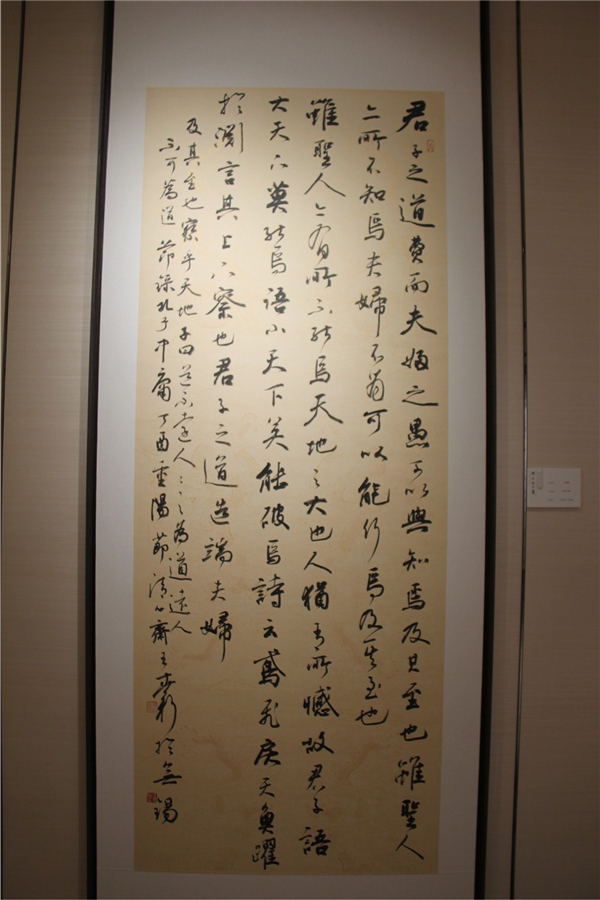 君子之道費而夫婦之愚可以與知焉及其至也雖聖人
亦所不知焉夫婦不肖可以能行焉及其至也
雖聖人亦有所不能焉天地之大也人猶有所憾故君子語
大天下莫能焉語小天下莫能破焉詩云鳶飛戾天魚躍
於淵言其上下察也君子之道造端夫婦
及其至也察乎天地子曰道不遠人人之為道遠人
不可為道節錄孔子中庸丁酉重陽節清心齋王於無錫